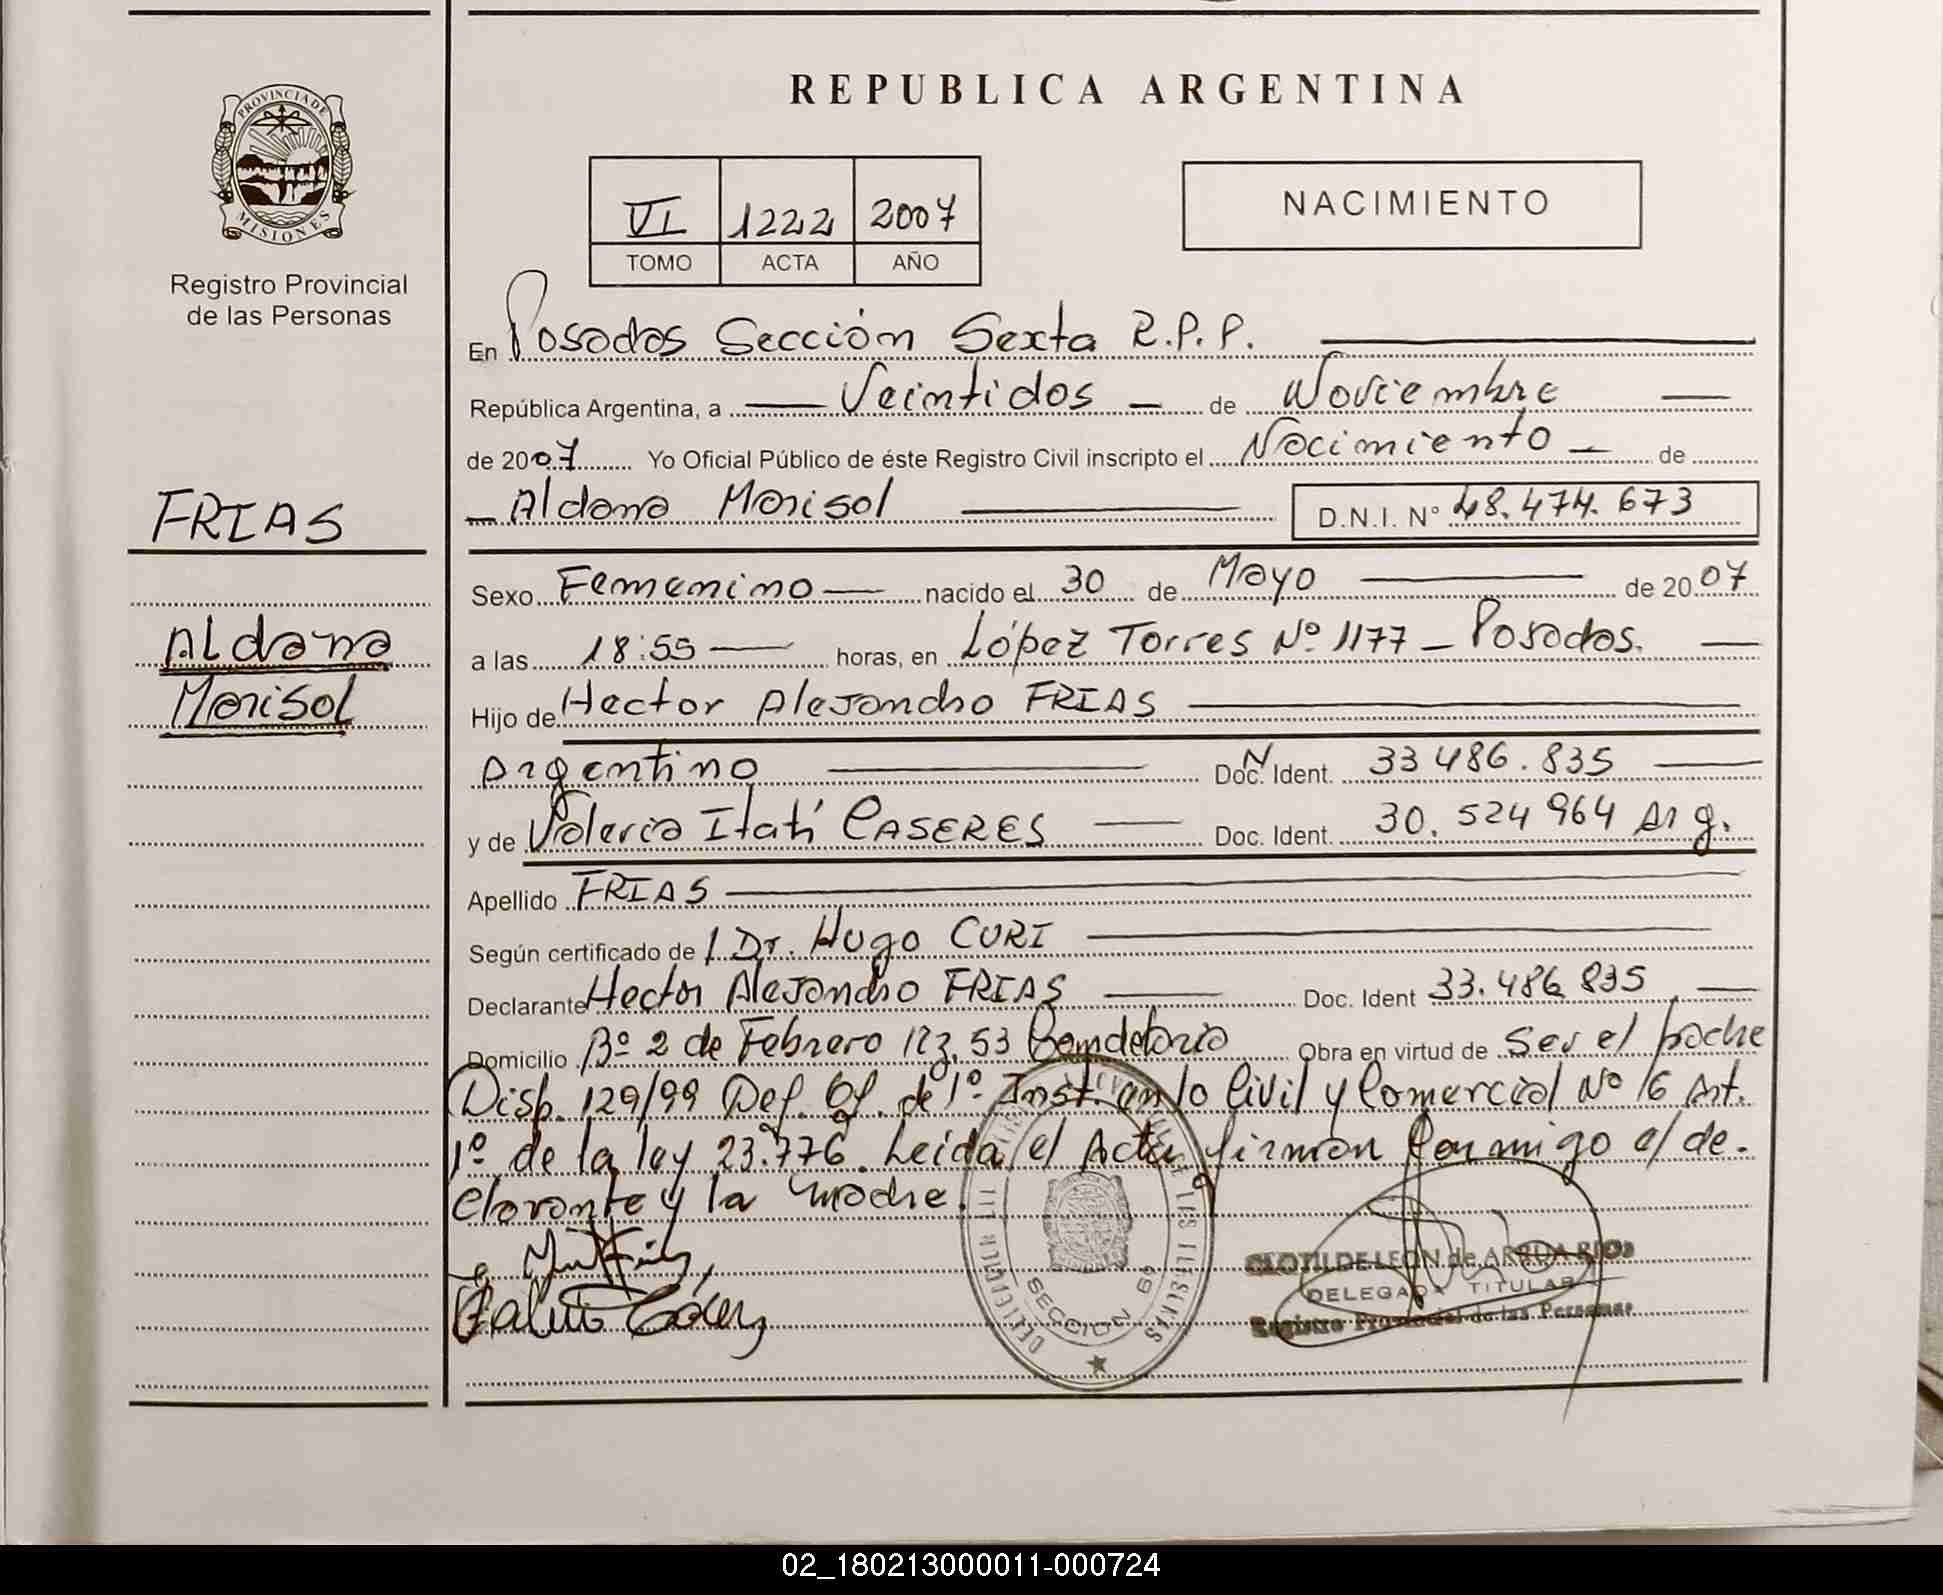 REPUBLICA ARGENTINA
PROVINCIA DE
MISIONES
Registro Provincial
de las Personas
VI 1222 2007
TOMO ACTA AÑO
NACIMIENTO
En Posadas Sección Sexta R.P.P.
República Argentina, a Veintidos de Noviembre
de 2007 Yo Oficial Público de éste Registro Civil inscripto el Nacimiento de
Aldana Marisol D.N.I. N° 48.474.673
FRIAS
Aldana
Marisol
Sexo Femenino nacido el 30 de Mayo de 2007
a las 18:55 horas, en López Torres Nº 1177 - Posadas.
Hijo de Hector Alejandro FRIAS
Argentino Doc. Ident. N 33 486.835
y de Valeria Itatí CASERES Doc. Ident. 30.524 964 Arg.
Apellido FRIAS
Según certificado de Dr. Hugo CURI
Declarante Hector Alejandro FRIAS Doc. Ident 33.486 835
Domicilio Bº 2 de Febrero Mz. 53 Obra en virtud de Ser el padre
Disp. 129/99 Def. Of. de 1º Inst. en lo Civil y Comercial Nº 6 Art.
1º de la ley 23.776. Leida el Acta firman conmigo el de-
clarante y la madre.
SECCION 6ª
CLOTILDE LEON de ARRUA RIOS
DELEGADA TITULAR
Registro Provincial de las Personas
02_180213000011-000724